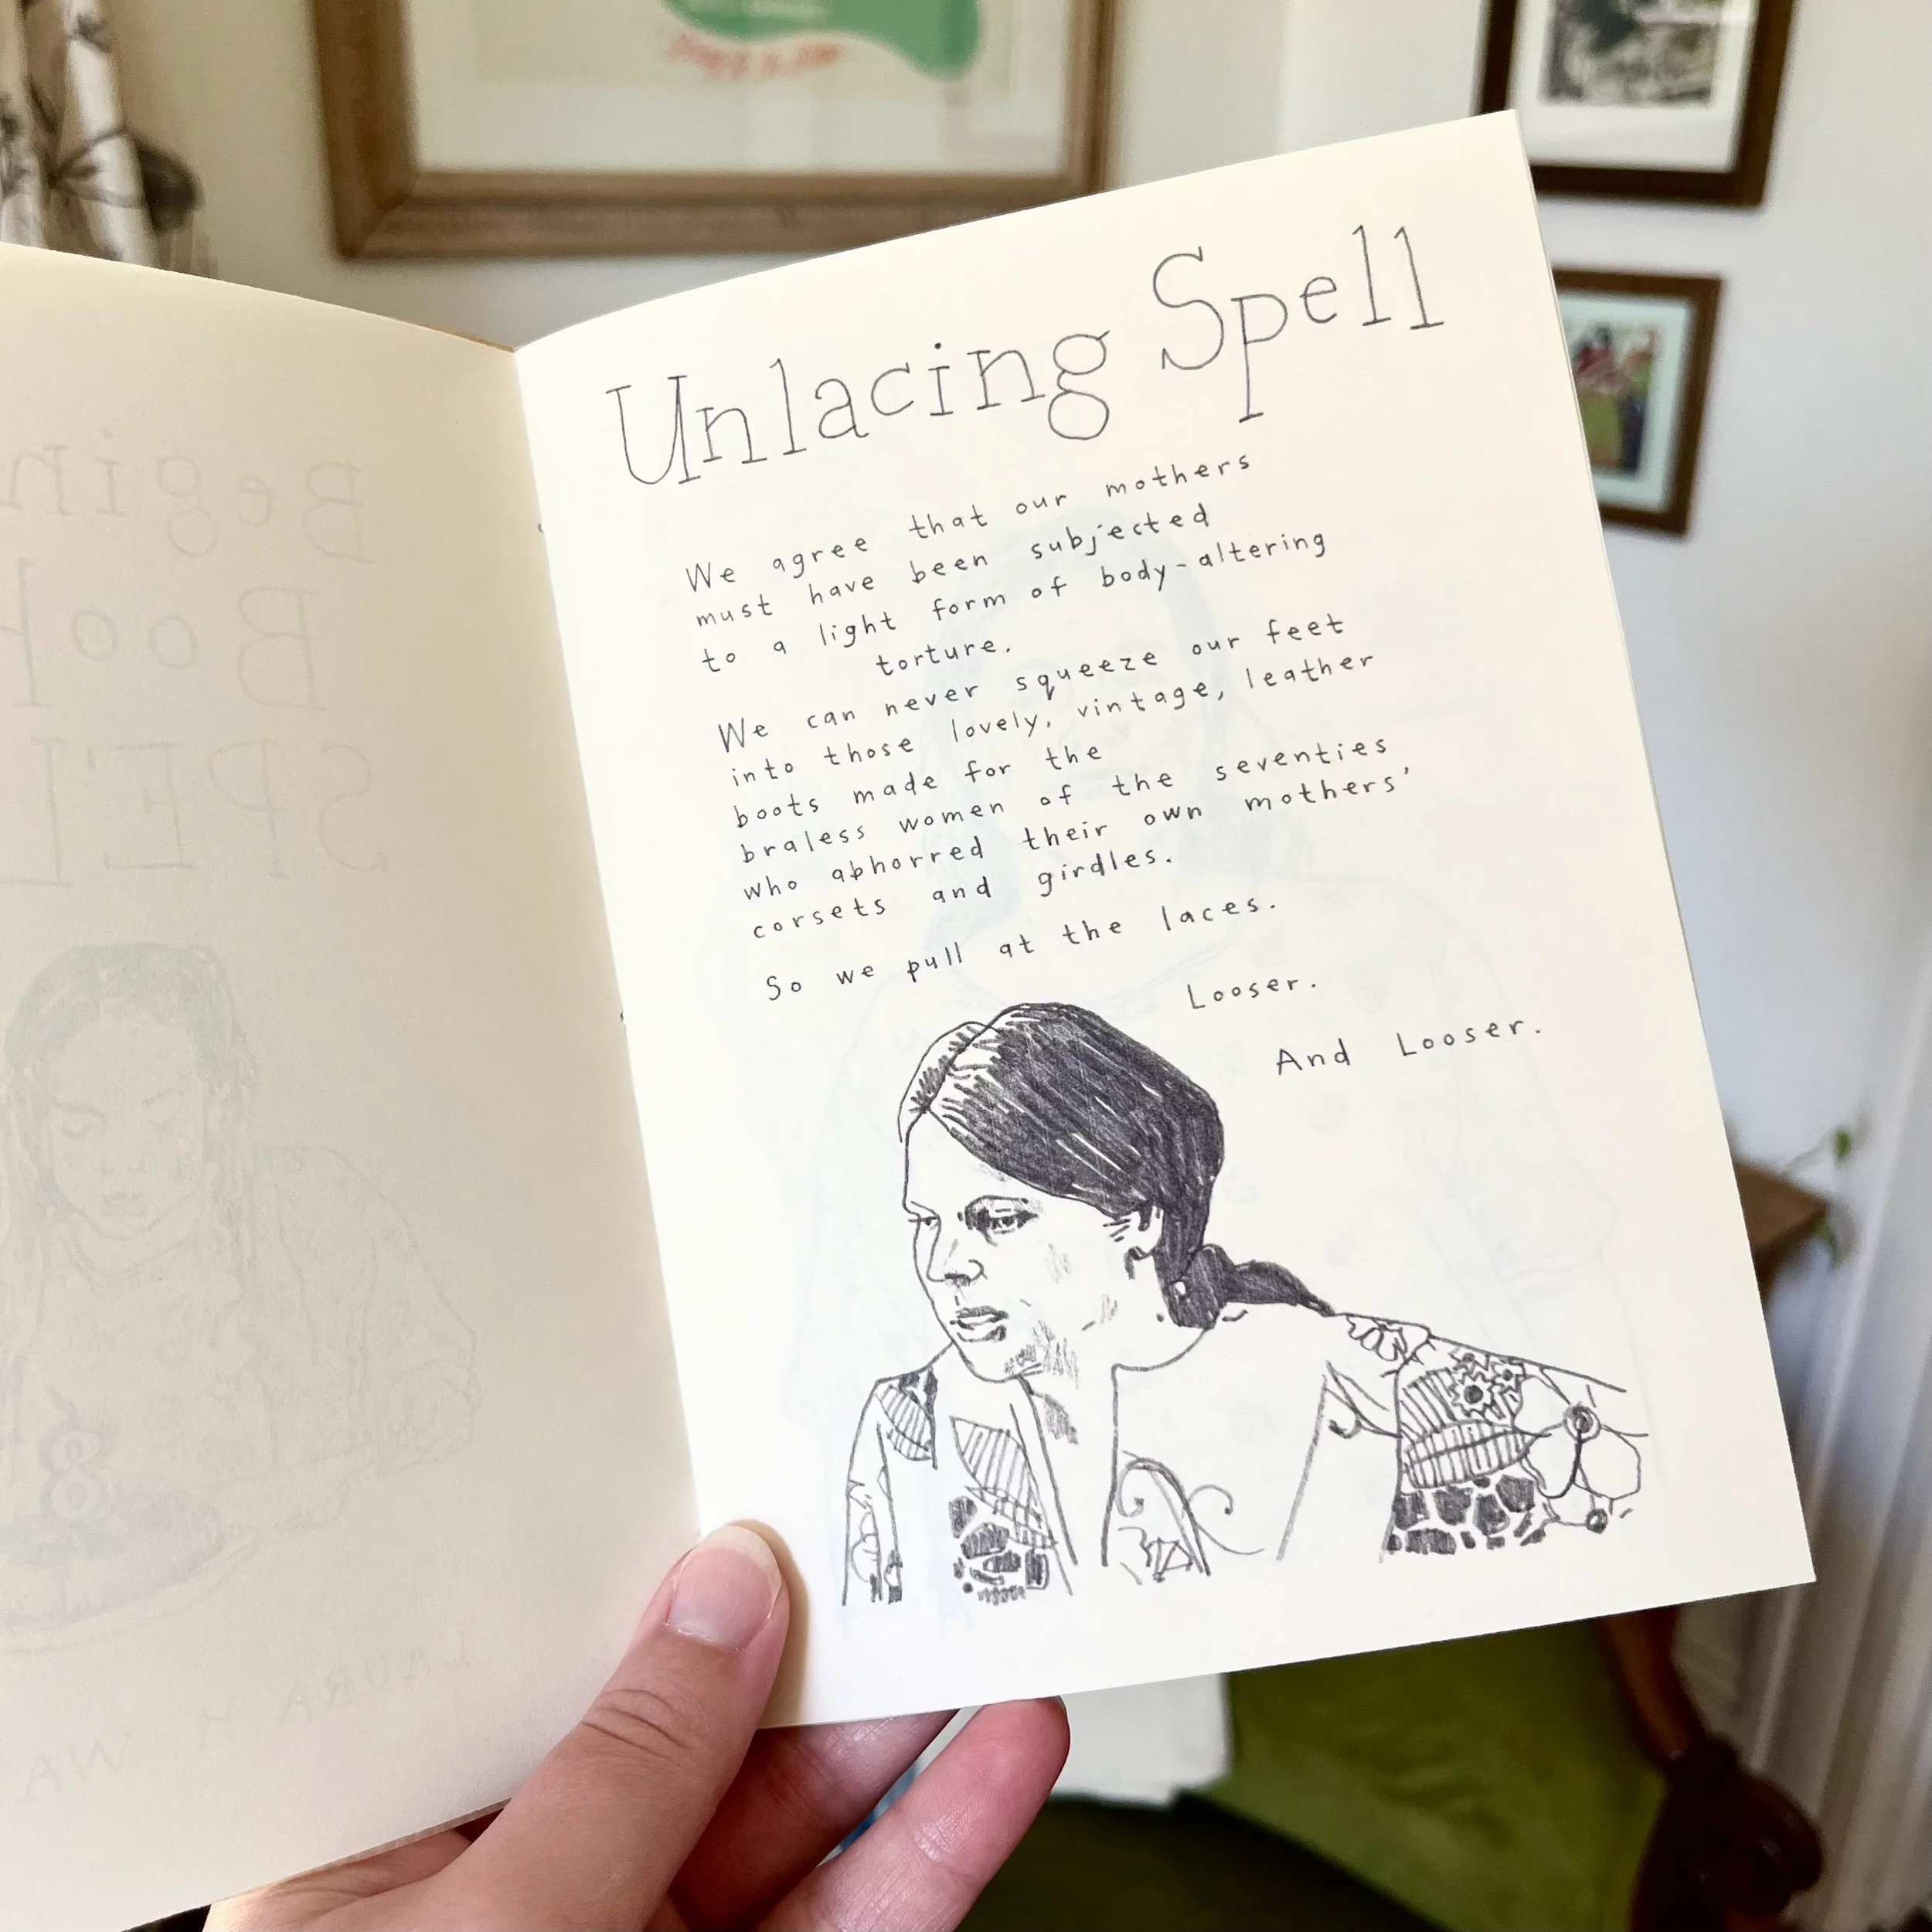 Unlacing Spell
We agree that our mothers
must have been subjected
to a light form of body-altering
torture.
We can never squeeze our feet
into those lovely, vintage, leather
boots made for the
braless women of the seventies
who abhorred their own mothers'
corsets and girdles.
So we pull at the laces.
Looser.
And Looser.